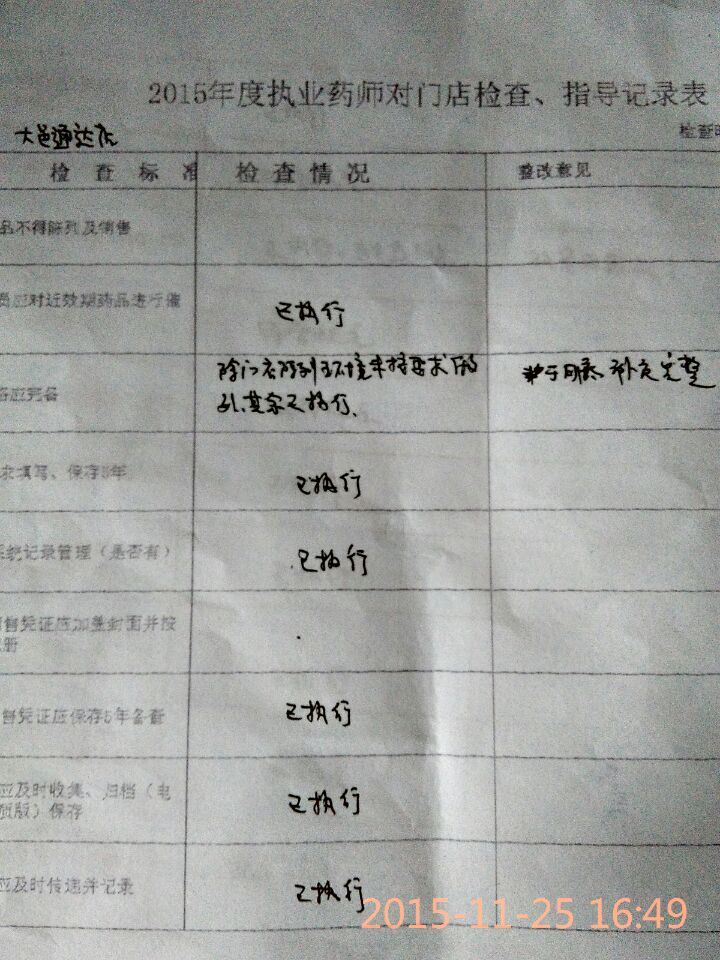 2015年度执业药师对门店检查、指导记录表
大邑通达店
检查
检 查 标 准
检 查 情 况
整改意见
品不得陈列及销售
员应对近效期药品进行催
已执行
应完备
除门店陈列环境未按要求
其余已执行、
补充完整
求填写、保存5年
已执行
系统记录管理（是否有）
已执行
售凭证应加盖封面并按
册
售凭证应保存5年备查
已执行
应及时收集、归档（电
质版）保存
已执行
应及时传递并记录
已执行
2015-11-25 16:49